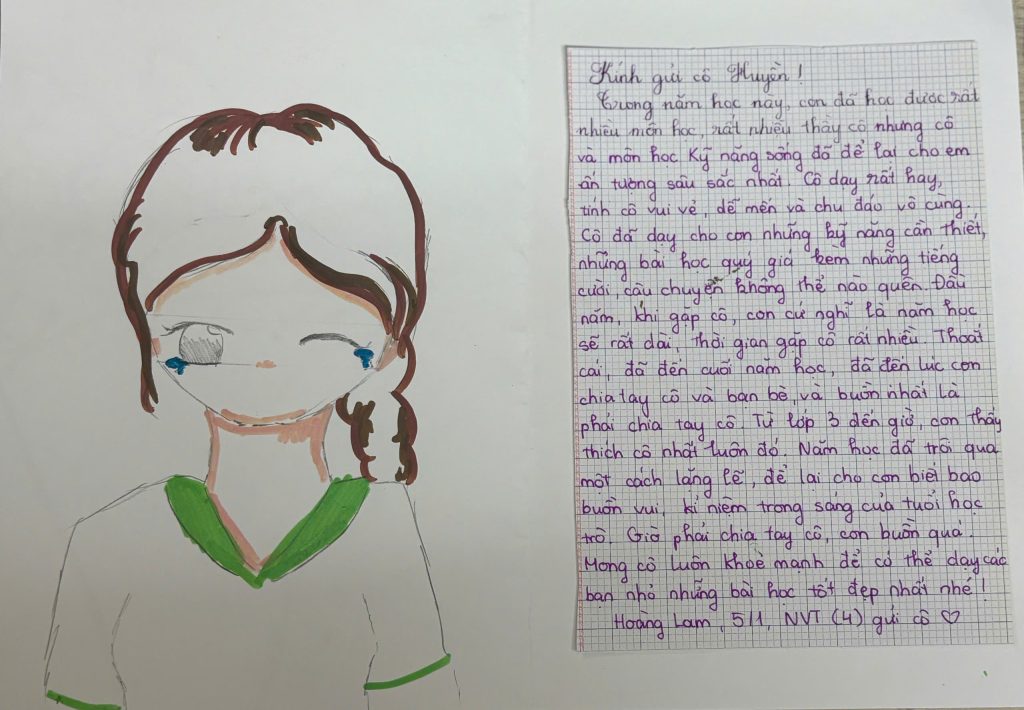 Kính gửi cô Huyền !
Trong năm học này, con đã học được rất
nhiều môn học, rất nhiều thầy cô nhưng cô
và môn học Kỹ năng sống đã để lại cho em
ấn tượng sâu sắc nhất. Cô dạy rất hay,
tính cô vui vẻ, dễ mến và chu đáo vô cùng.
Cô đã dạy cho con những kỹ năng cần thiết,
những bài học quý giá kèm những tiếng
cười, câu chuyện không thể nào quên. Đầu
năm, khi gặp cô, con cứ nghĩ là năm học
sẽ rất dài, thời gian gặp cô rất nhiều. Thoắt
cái, đã đến cuối năm học, đã đến lúc con
chia tay cô và bạn bè, và buồn nhất là
phải chia tay cô. Từ lớp 3 đến giờ, con thấy
thích cô nhất luôn đó. Năm học đã trôi qua
một cách lặng lẽ, để lại cho con biết bao
buồn vui, kỉ niệm trong sáng của tuổi học
trò. Giờ phải chia tay cô, con buồn quá.
Mong cô luôn khoẻ mạnh để có thể dạy các
bạn nhỏ những bài học tốt đẹp nhất nhé !
Hoàng Lam, 5/1, NVT (4) gửi cô ♡